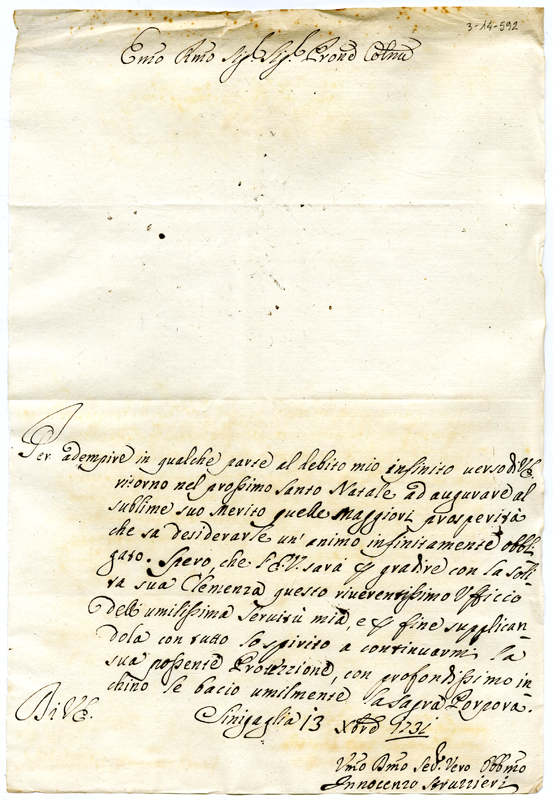 3-14-592
Emo Rmo Sig.r Sig.r Prone Colmo
Per adempire in qualche parte al debito mio infinito verso di V.E.
ritorno nel prossimo Santo Natale ad augurare al
sublime suo Merito quelle maggiori prosperità
che sa desiderarle un' animo infinitamente obbli
gato. Spero, che l'E.V. sarà p gradire con la soli
ta sua Clemenza questo riverentissimo Ufficio
dell' umilissima servitù mia, e p fine supplican
dola con tutto lo spirito a continuarmi la
sua possente Protezzione, con profondissimo in
chino le bacio umilmente la Sagra Porpora.
Di V.E.
Sinigaglia 13 Xbre 1731
Umo Dmo Ser.r Vero Obbmo
Innocenzo Struzzieri